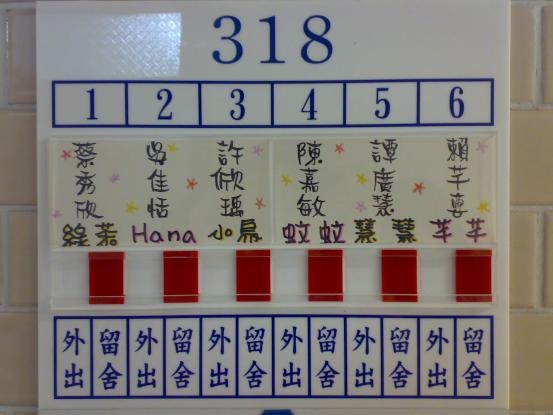 318
1 2 3 4 5 6
蔡秀欣 吳佳恬 許俽瑀 陳嘉敏 譚廣慧 賴芊憓
綠茶 Hana 小鳥 蚊蚊 慧慧 芊芊
外出 留舍 外出 留舍 外出 留舍 外出 留舍 外出 留舍 外出 留舍